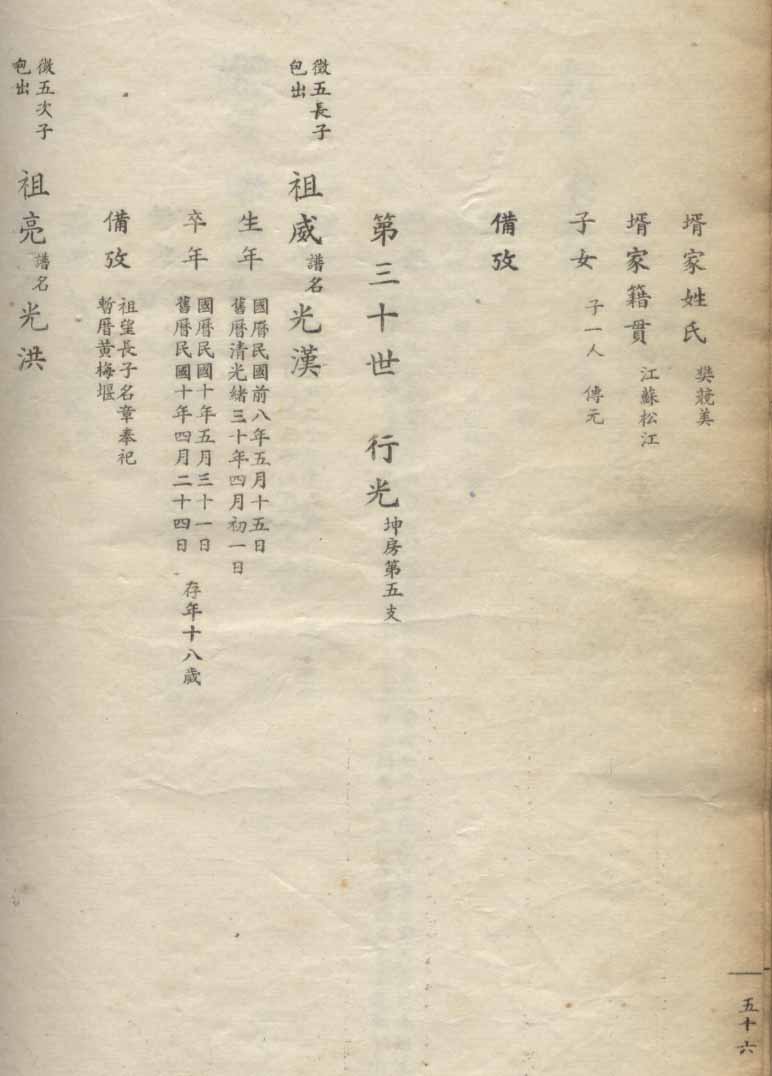 壻家姓氏 樊競美
壻家籍貫 江蘇松江
子女 子一人 傳元
備攷
第三十世 行光 坤房第五支
徵五長子
包出
祖威 譜名 光漢
生年
國曆民國前八年五月十五日
舊曆清光緒三十年四月初一日
卒年
國曆民國十年五月三十一日
舊曆民國十年四月二十四日 存年十八歲
備攷
祖望長子名章奉祀
暫厝黃梅堰
徵五次子
包出
祖亮 譜名 光洪
五十六